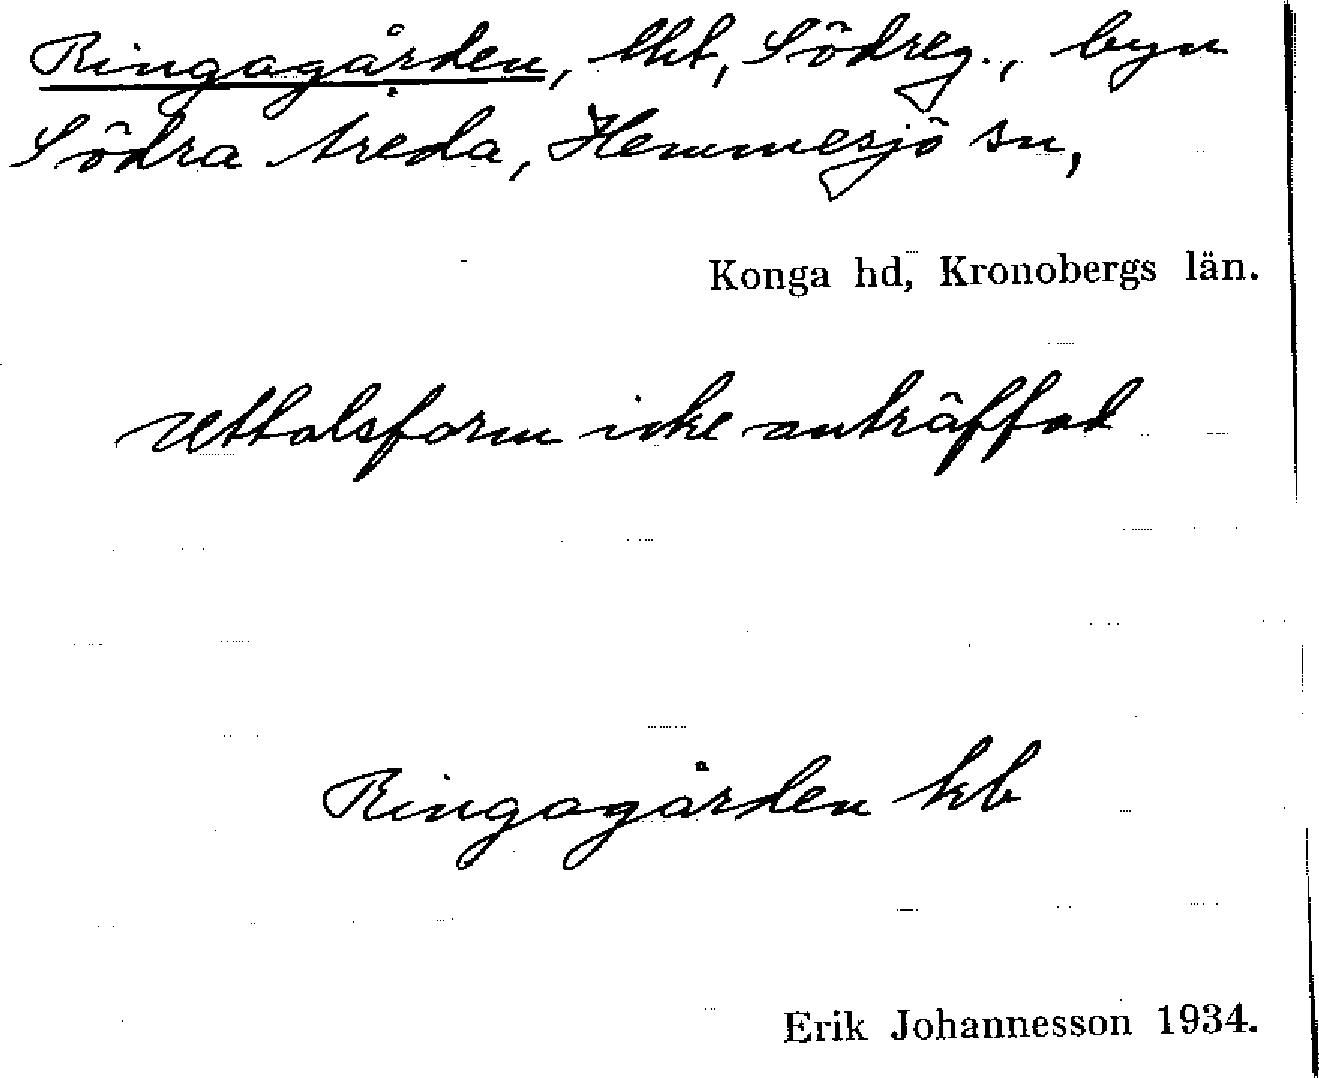 Ringagården, lht, Södreg., byn
Södra Areda, Hemmesjö sn,
Konga hd, Kronobergs län.
Uttalsform icke anträffad
Ringagården kb
Erik Johannesson 1934.